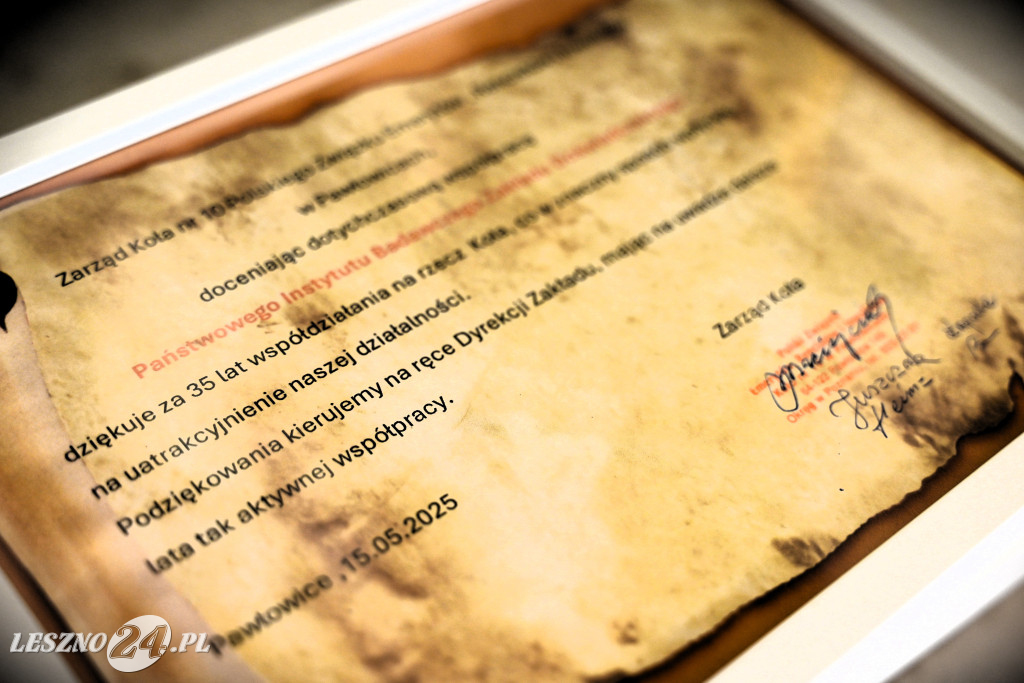 Zarząd Koła nr 10 Polskiego Związku
w Pawłowicach,
doceniając dotychczasową współpracę
Państwowego Instytutu Badawczego Zakładu
dziękuje za 35 lat współdziałania na rzecz Koła, co w znaczny sposób
na uatrakcyjnienie naszej działalności.
Podziękowania kierujemy na ręce Dyrekcji Zakładu, mając na uwadze
lata tak aktywnej współpracy.
Zarząd Koła
Pawłowice ,15.05.2025
LESZNO24.PL